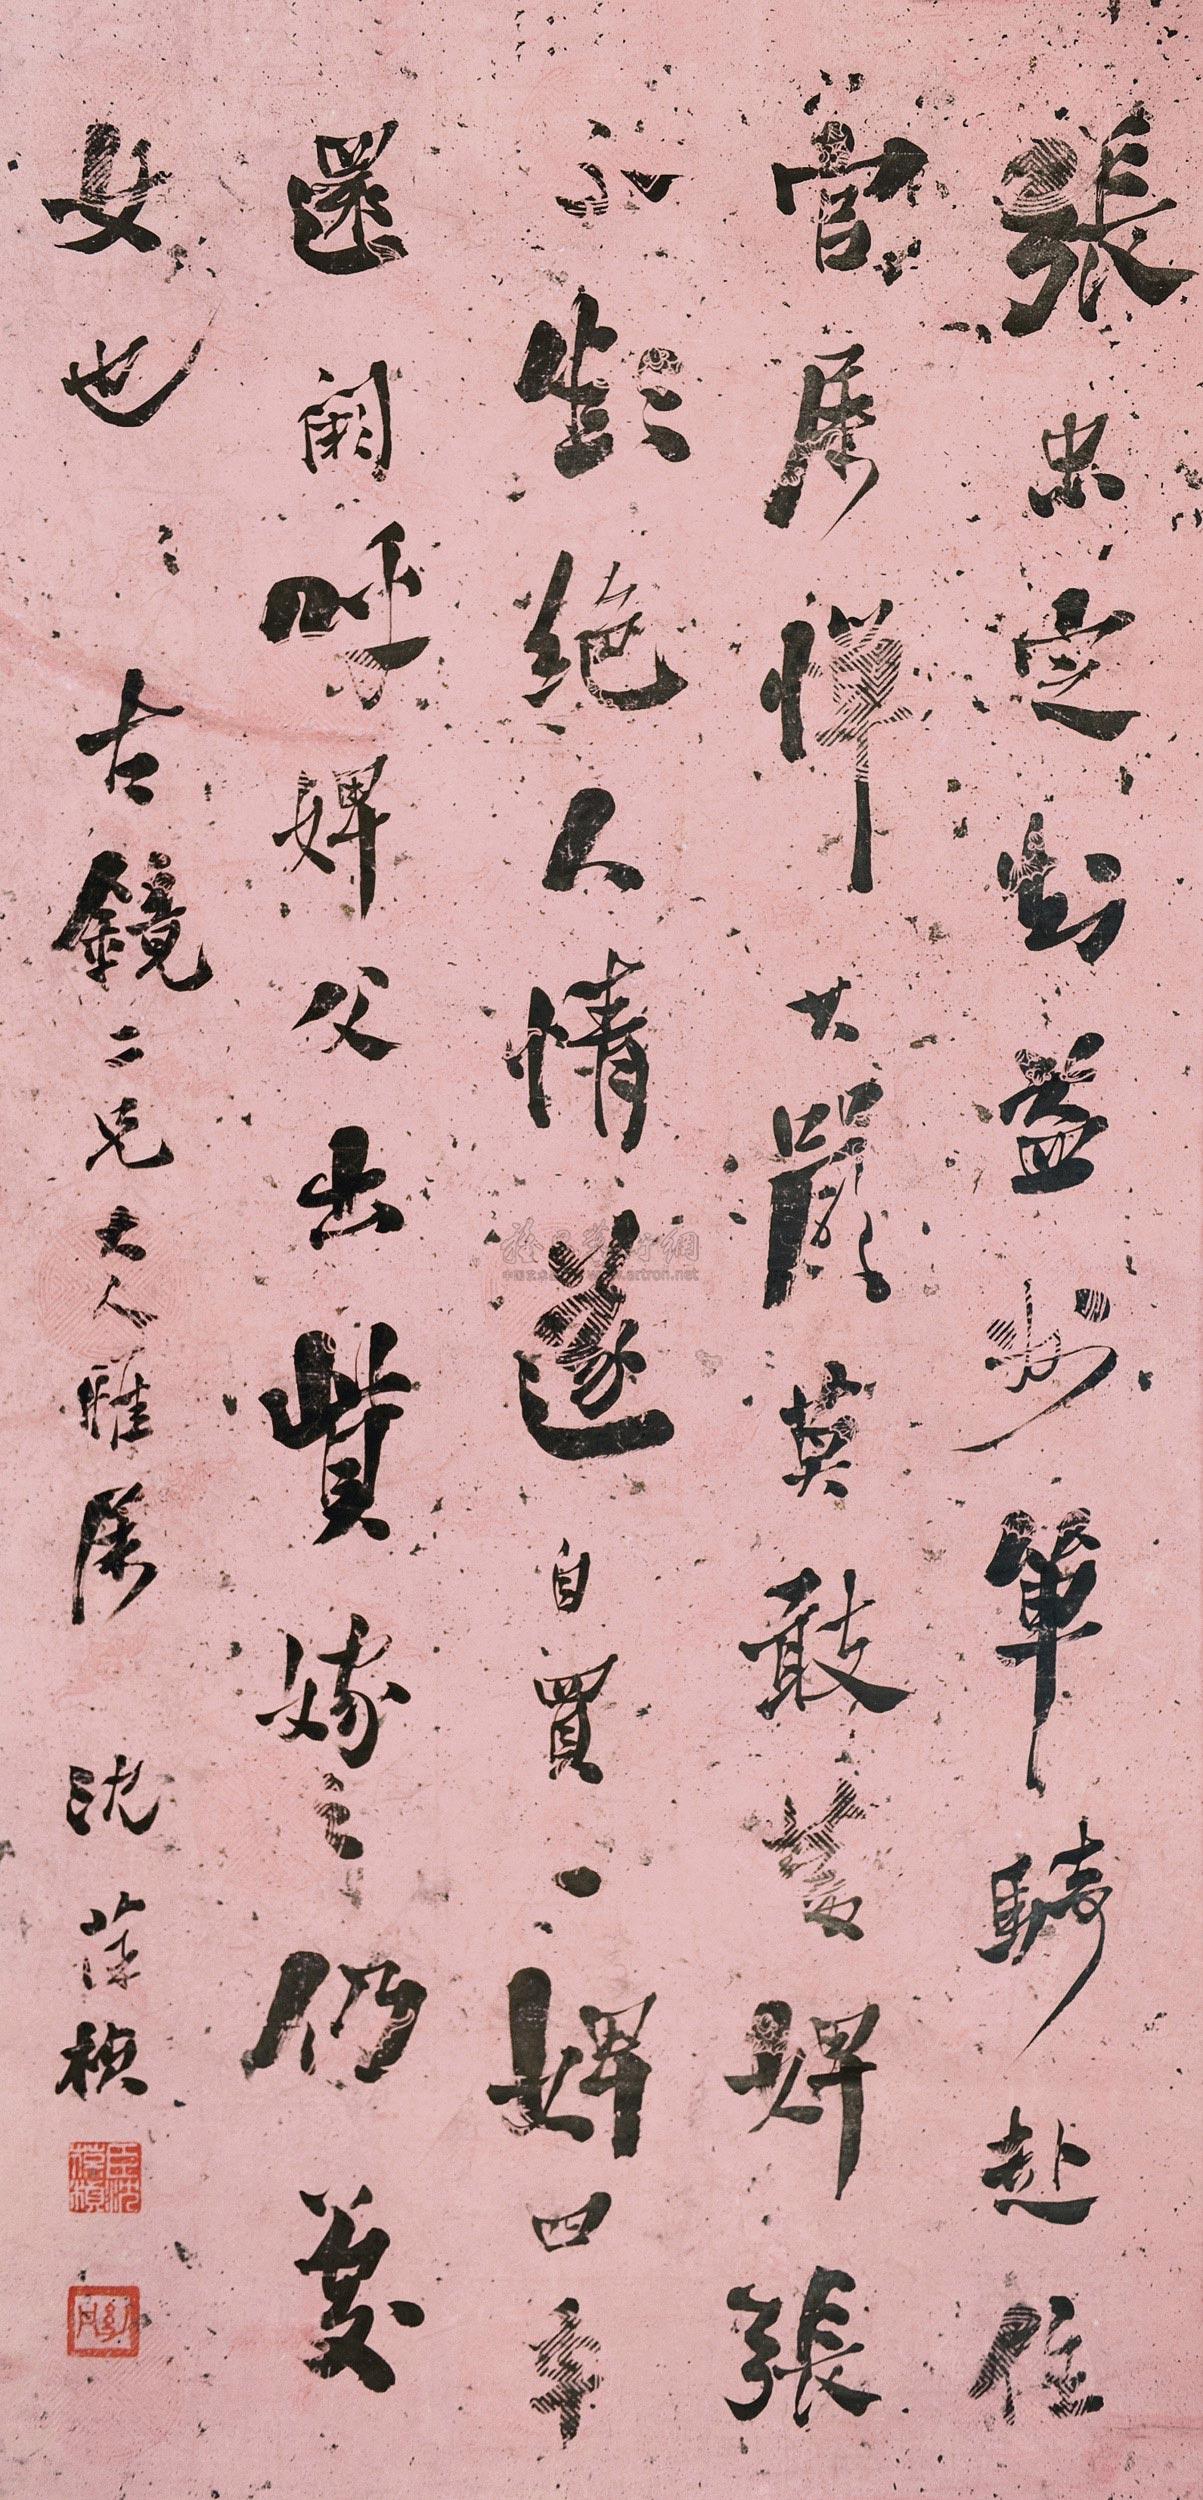 張忠定知益州單騎赴任
官屬憚其嚴莫敢蓄婢張
不欲絕人情遂自買一婢四年
還闕呼婢父出貲嫁之仍處
女也
古鏡二兄大人雅屬 沈葆楨
臣沈葆楨